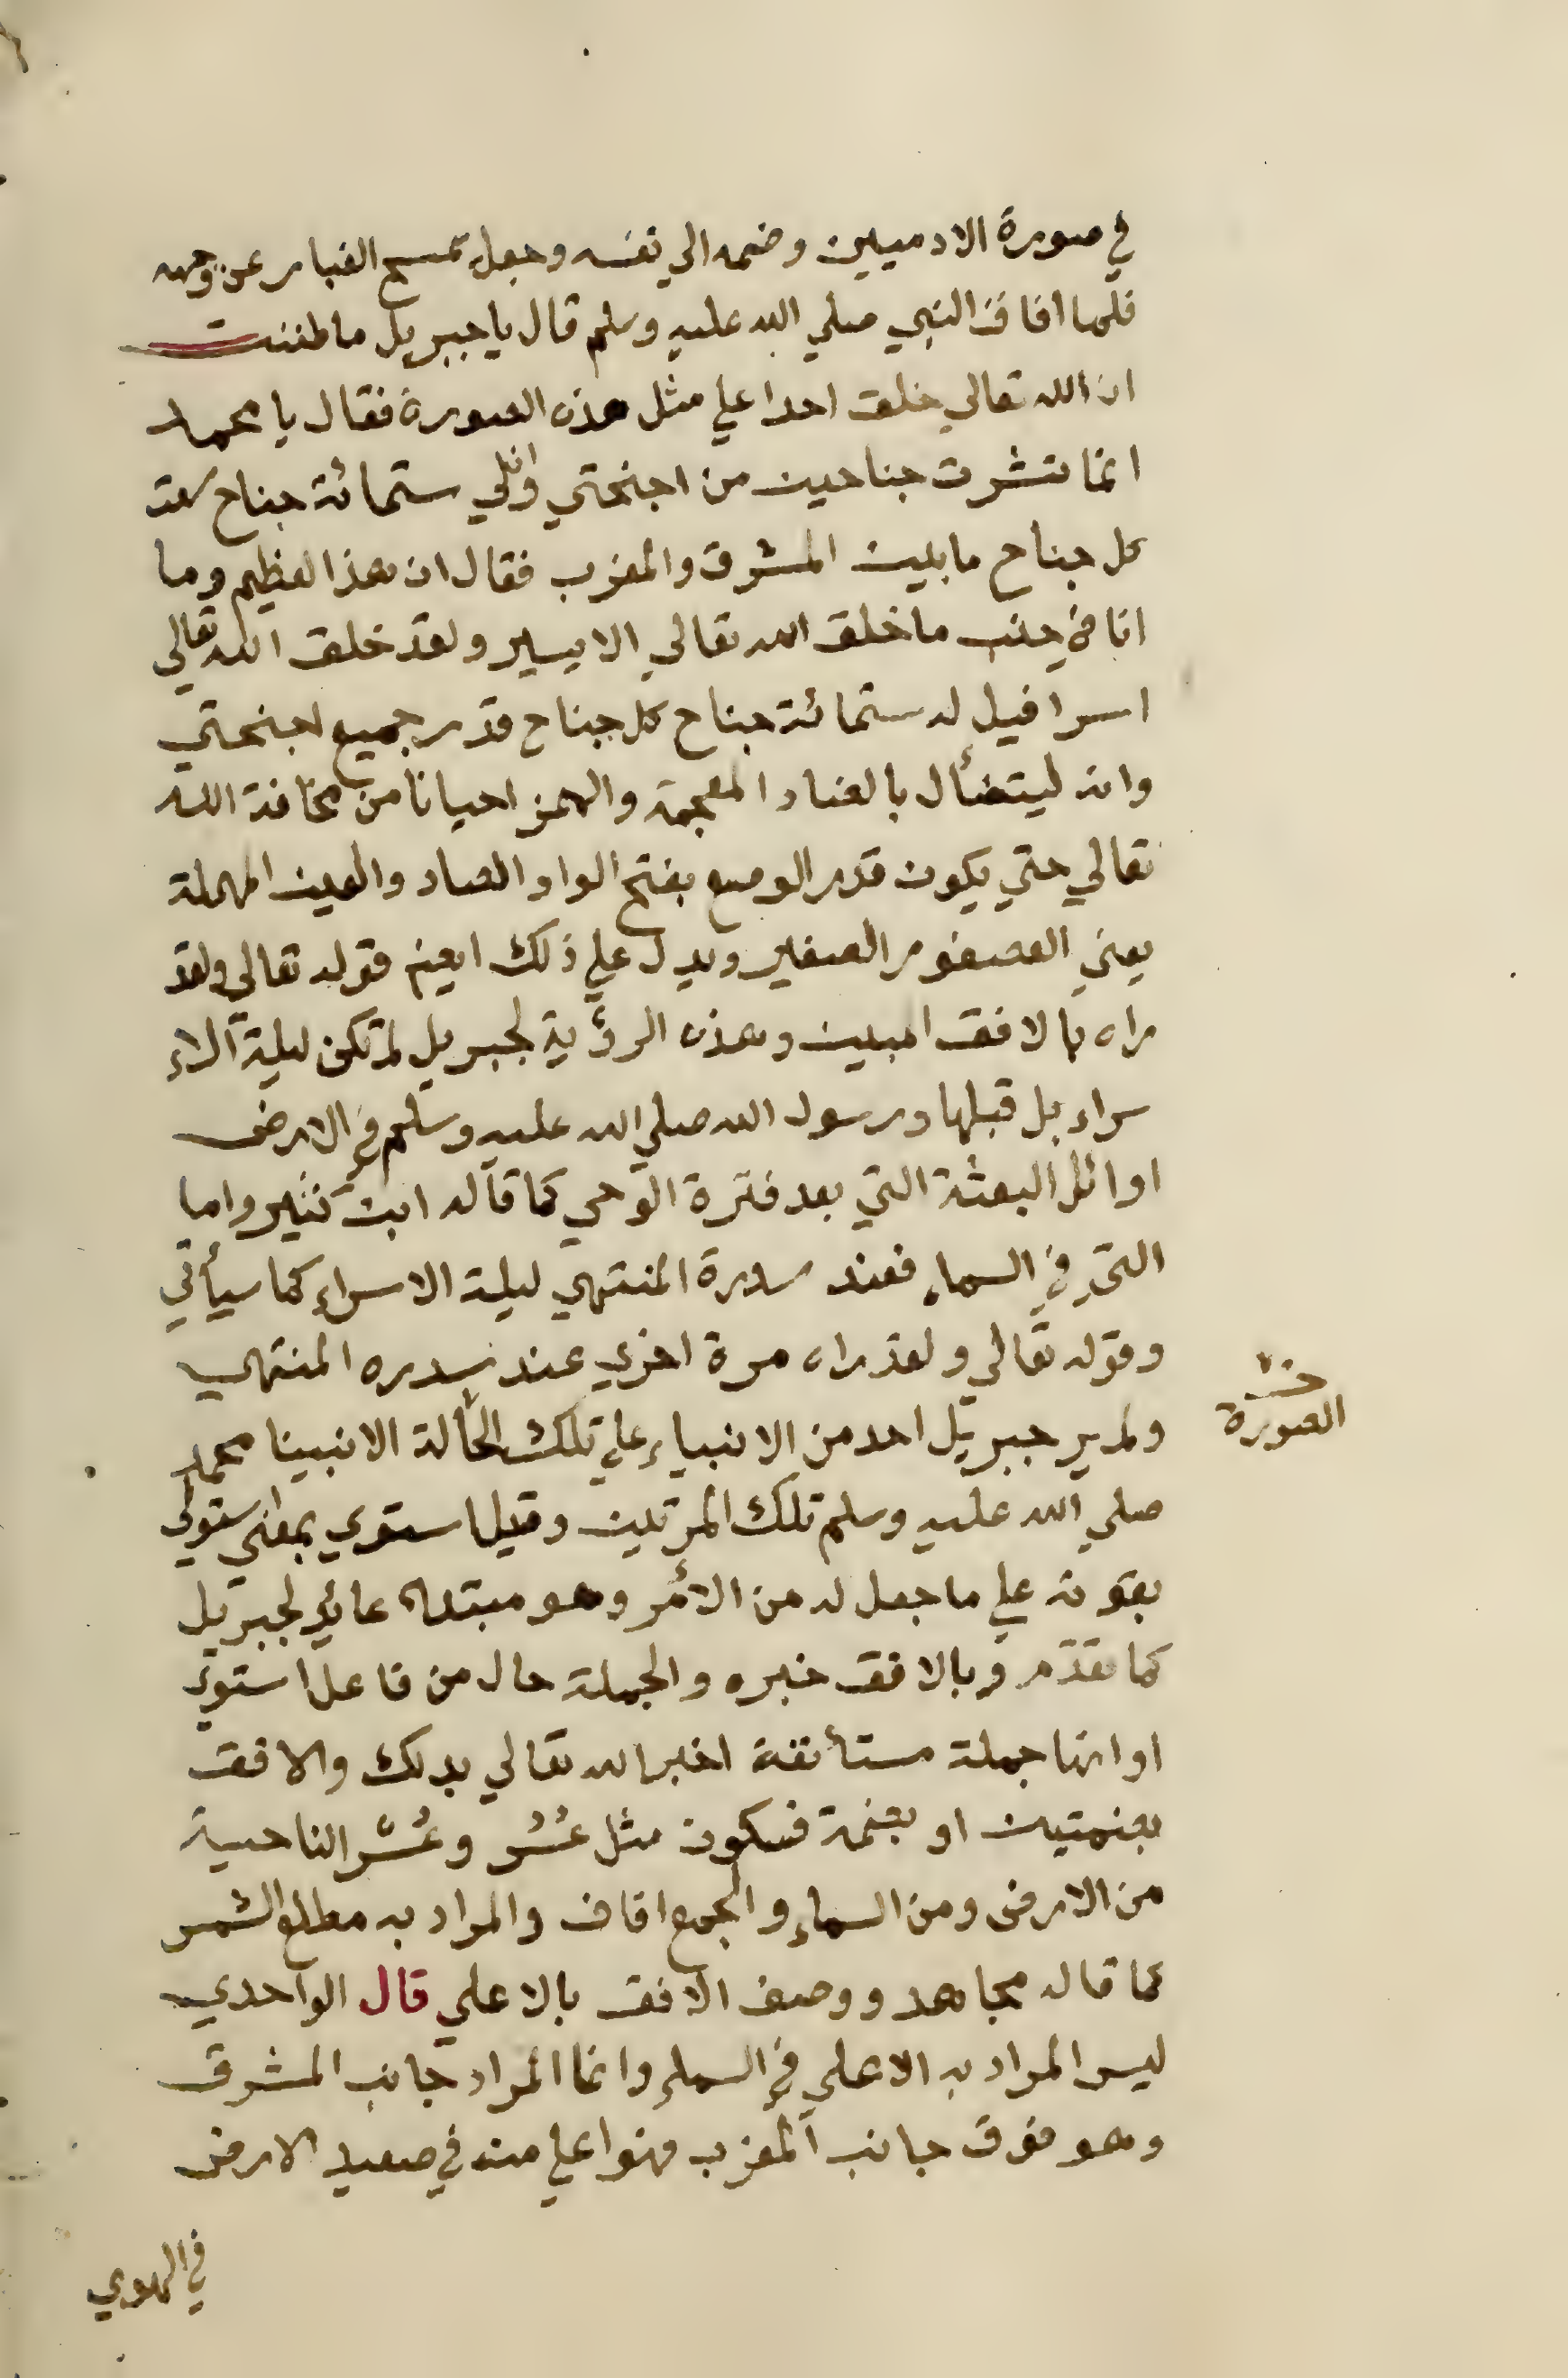 في صورة الادميين وضمه الي نفسه وجعل يمسح الغبار عن وجهه
فلما افاق النبي صلي الله عليه وسلم قال يا جبريل ما ظننت
ان الله تعالي خلق احدا علي مثل هذه الصورة فقال يا محمد
انما نشرت جناحين من اجنحتي وان لي ستمائة جناح سعة
كل جناح ما بين المشرق والمغرب فقال ان هذا لعظيم وما
انا في جنب ما خلق الله تعالي الا يسير ولقد خلق الله تعالي
اسرافيل له ستمائة جناح كل جناح قدر جميع اجنحتي
وانه ليتضأل بالضاد المعجمة والهمز احيانا من مخافة الله
تعالي حتي يكون قدر الوصع بفتح الواو الصاد والعين المهملة
يعني العصفور الصغير ويدل علي ذلك ايضم قوله تعالي ولقد
راه بالافق المبين وهذه الرؤية لجبريل لم تكن ليلة الاء
سراء بل قبلها ورسول الله صلي الله عليه وسلم في الارض
اوائل البعثة التي بعد فترة الوحي كما قاله ابن كثير واما
التي في السماء فعند سدرة المنتهي ليلة الاسراء كما سيأتي
وقوله تعالي ولقد راه مرة اخري عند سدره المنتهي
ولم ير جبريل احد من الانبياء علي تلك الحالة الا نبينا محمد
الصورة
صلي الله عليه وسلم تلك المرتين وقيل استوي بمعني استولي
بقوته علي ما جعل له من الأمر وهو مبتداء عائد لجبريل
كما تقدم وبالافق خبره والجملة حال من فاعل استوي
او انها جملة مستأنفة اخبر الله تعالي بذلك والافق
بضمتين او بضمة فسكون مثل عُسُر وعُسْر الناحية
من الارض ومن السماء والجمع افاق والمراد به مطلع الشمس
كما قاله مجاهد ووصف الافق بالاعلي قال الواحدي
ليس المراد به الاعلي في السماء وانما المراد جانب المشرق
وهو فوق جانب المغرب فهوا علي منه في صعيد الارض
في الهوي